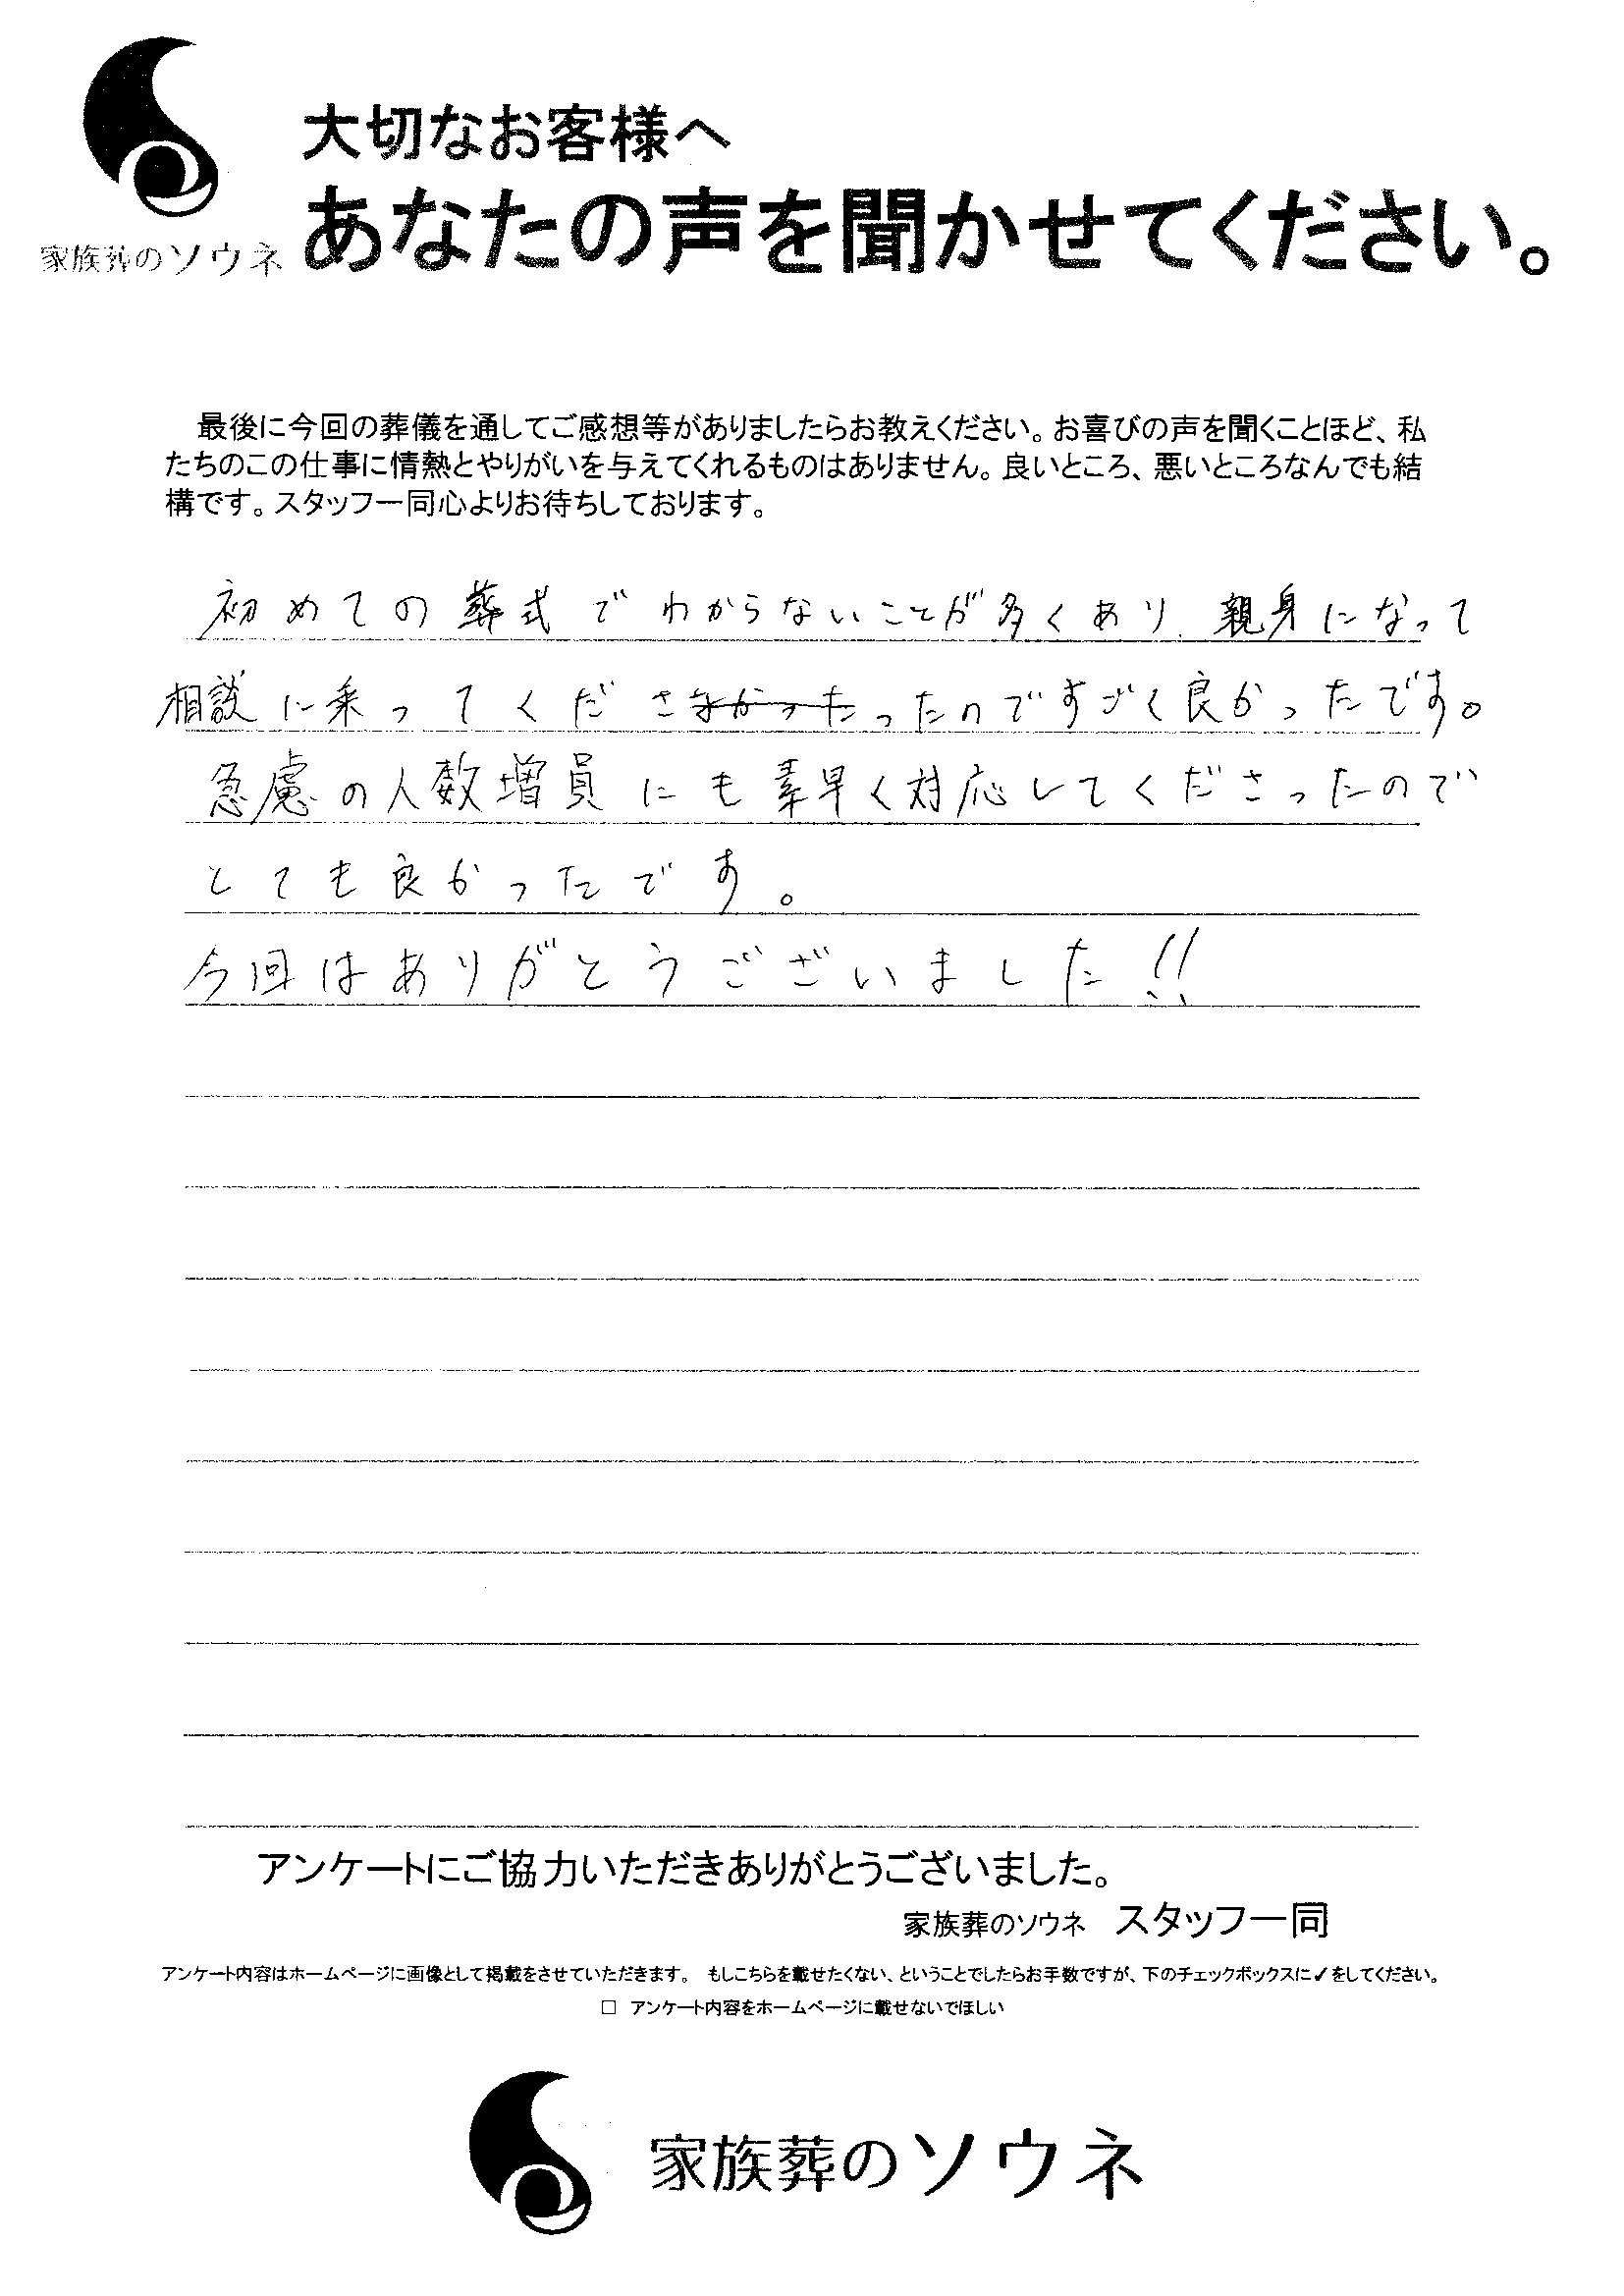 大切なお客様へ
家族葬のソウネ
あなたの声を聞かせてください。
最後に今回の葬儀を通してご感想等がありましたらお教えください。お喜びの声を聞くことほど、私
たちのこの仕事に情熱とやりがいを与えてくれるものはありません。良いところ、悪いところなんでも結
構です。スタッフ一同心よりお待ちしております。
初めての葬式でわからないことが多くあり、親身になって
相談に乗ってくださなかったったのですごく良かったです。
急慮の人数増員にも素早く対応してくださったので
とても良かったです。
今回はありがとうございました!!
アンケートにご協力いただきありがとうございました。
家族葬のソウネ スタッフ一同
アンケート内容はホームページに画像として掲載をさせていただきます。 もしこちらを載せたくない、ということでしたらお手数ですが、下のチェックボックスに✓をしてください。
□ アンケート内容をホームページに載せないでほしい
家族葬のソウネ